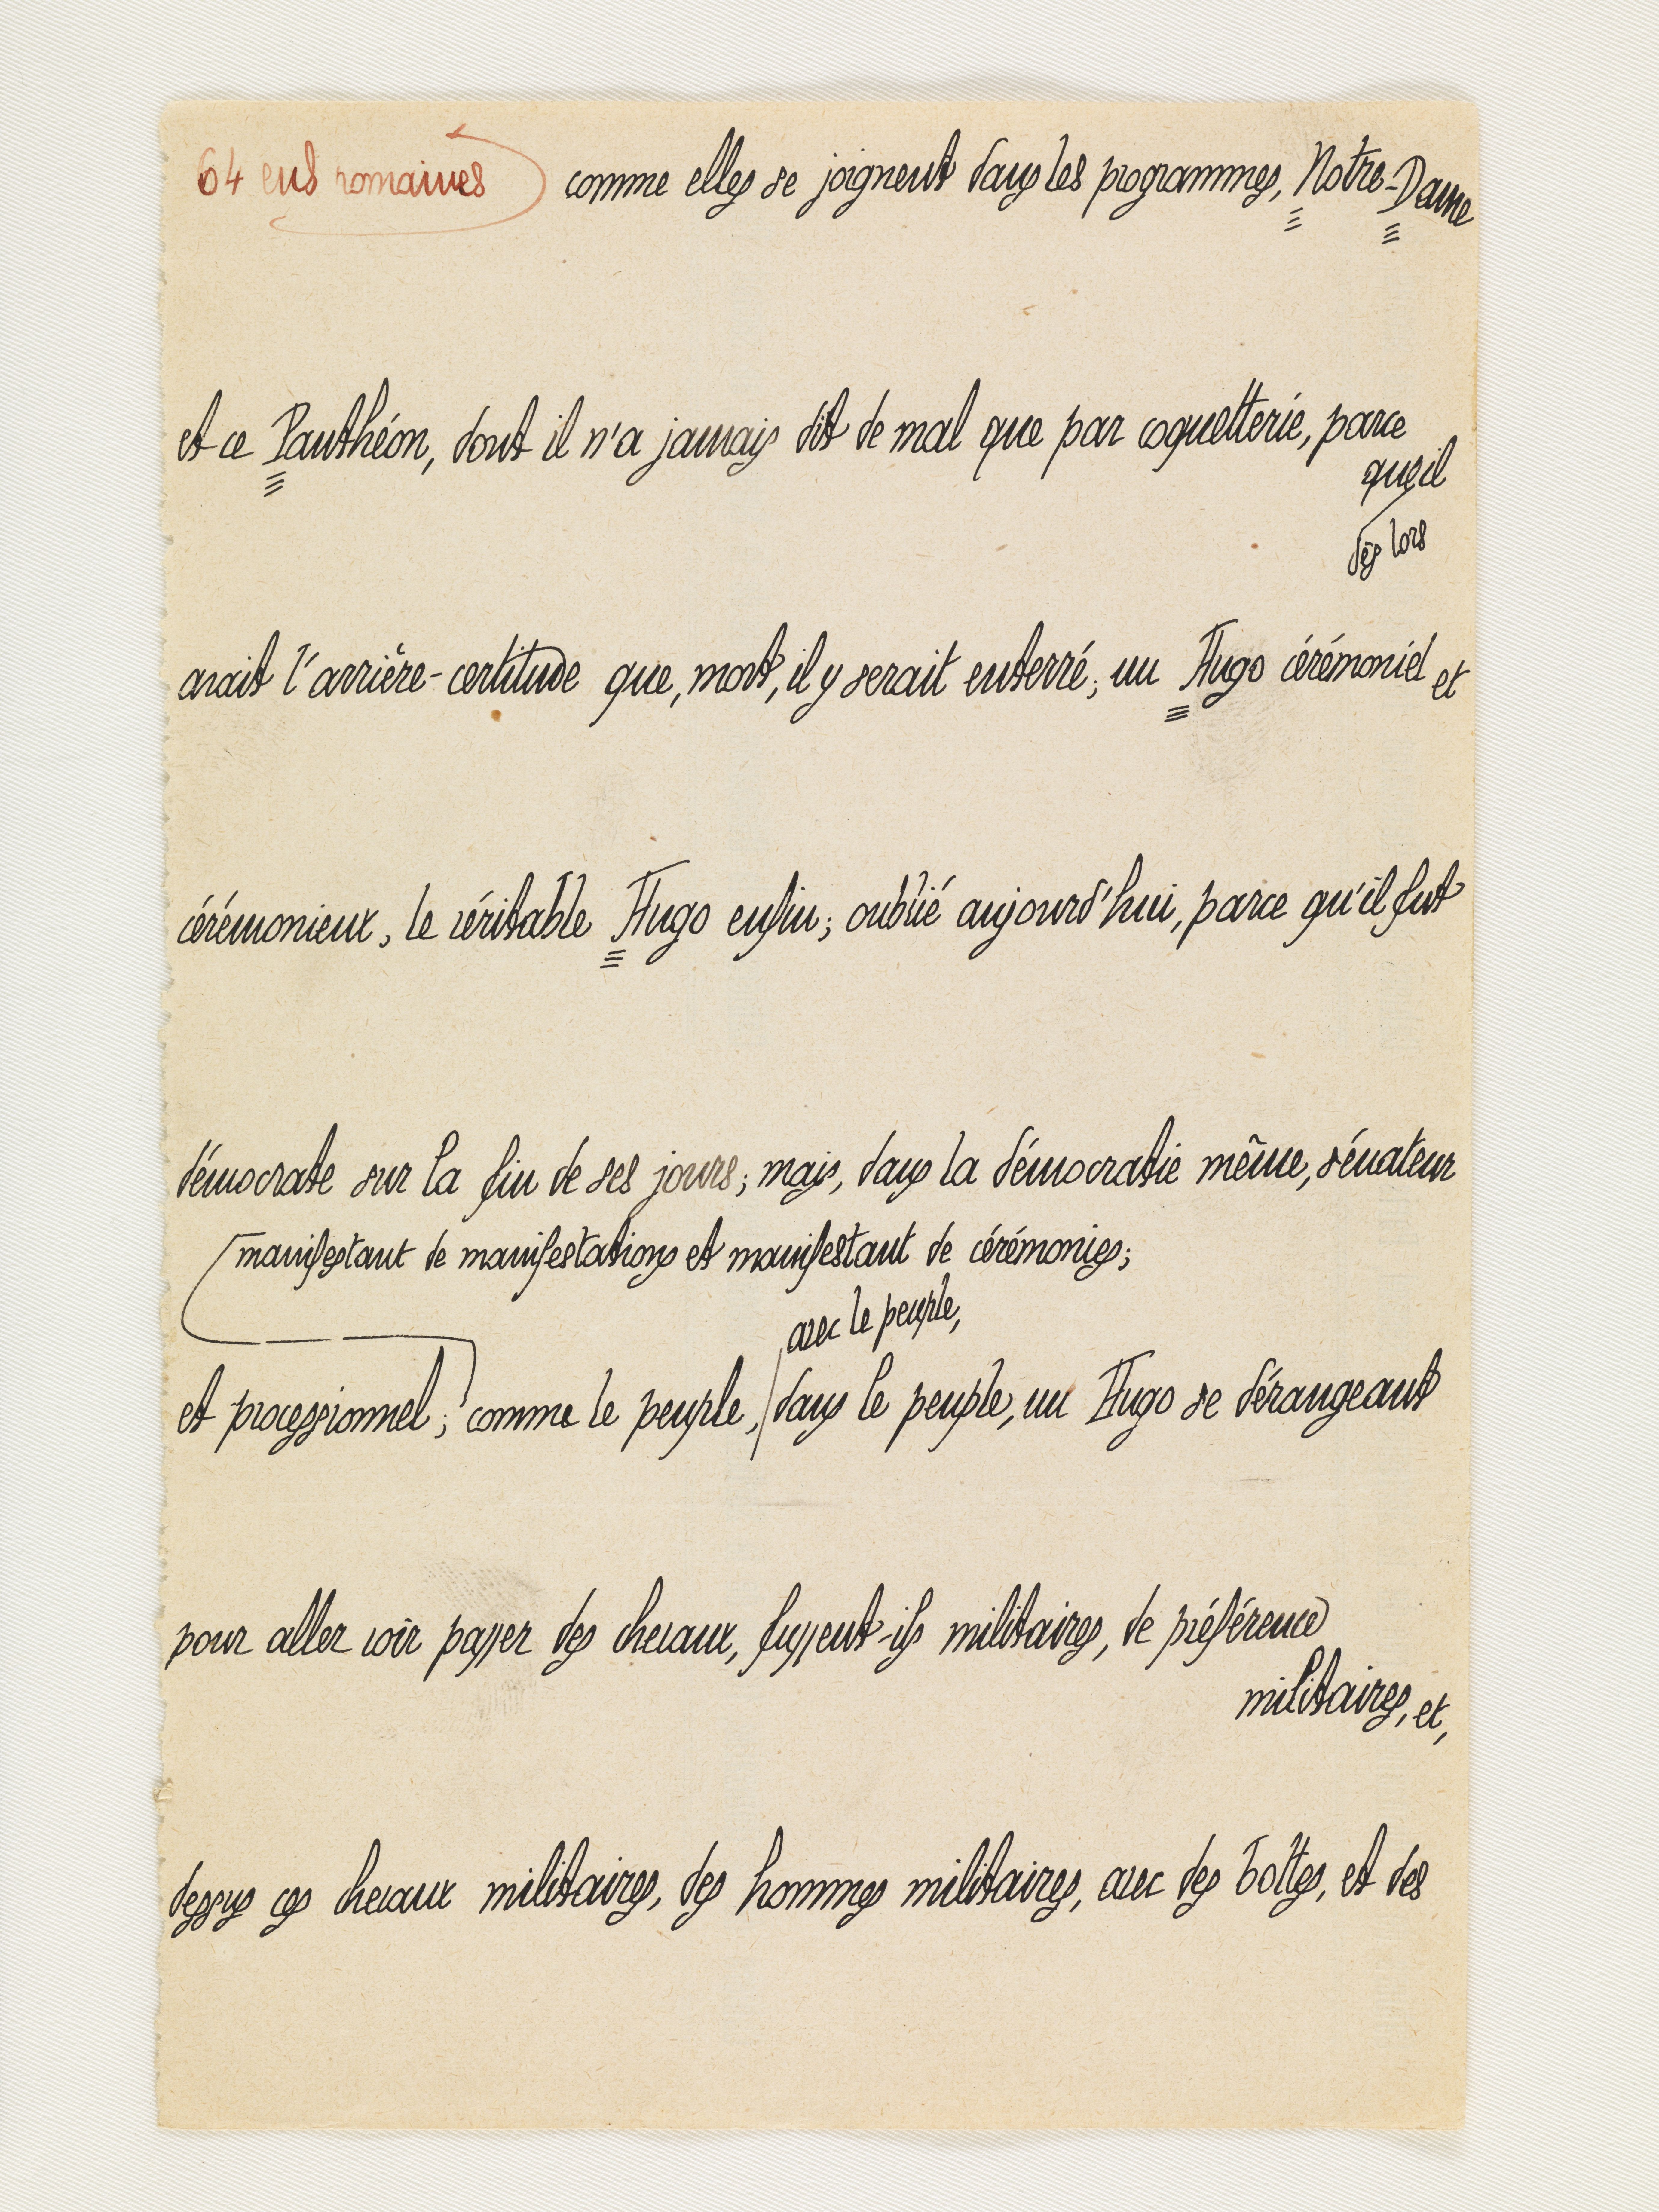 64 ens romaines comme elles se joignent dans les programmes, Notre-Dame
et ce Panthéon, dont il n'a jamais dit de mal que par coquetterie, parce
que il
dès lors
avait l'arrière-certitude que, mort, il y serait enterré; un Hugo cérémoniel et
cérémonieux, le véritable Hugo enfin; oublié aujourd'hui, parce qu'il fut
démocrate sur la fin de ses jours; mais, dans la démocratie même, sénateur
manifestant de manifestations et manifestant de cérémonies;
avec le peuple,
et processionnel; comme le peuple, dans le peuple, un Hugo se dérangeant
pour aller voir passer des chevaux, fussent-ils militaires, de préférence
militaires, et,
dessus ces chevaux militaires, des hommes militaires, avec des bottes, et des